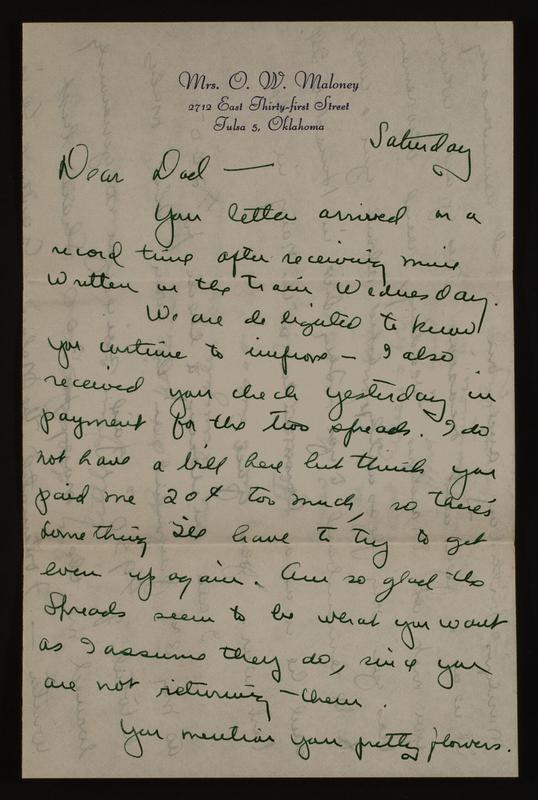 Mrs. O. W. Maloney
2712 East Thirty-first Street
Tulsa 5, Oklahoma
Saturday
Dear Dad —
Your letter arrived in a
record time after receiving mine
written on the train Wednesday.
We are delighted to know
you continue to improve — I also
received your check yesterday in
payment for the two spreads. I do
not have a bill here but think you
paid me 20¢ too much, so there's
something I'll have to try to get
even up again. Am so glad the
spreads seem to be what you want
as I assume they do, since you
are not returning them.
You mention your pretty flowers.